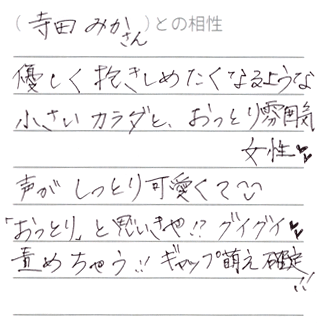 （寺田 みかさん）との相性
優しく抱きしめたくなるような
小さいカラダと、おっとり雰囲気
女性♥♥
声がしっとり可愛くて
「おっとり」と思いきや!? グイグイ♥♥
責めちゃう!! ギャップ萌え確定!!